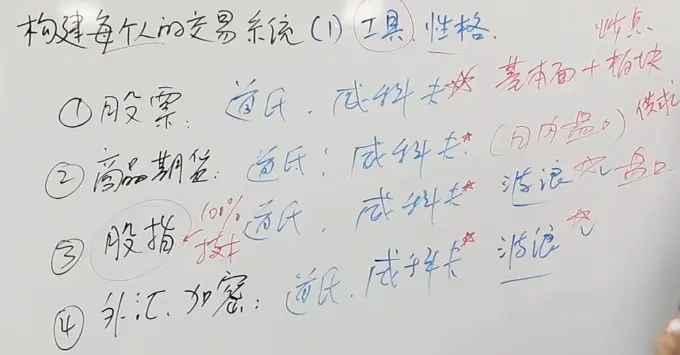 构建每个人的交易系统(1) 工具. 性格.
特点.
①股票: 道氏. 威科夫☆☆ 基本面+板块
②商品期货: 道氏. 威科夫☆ (日内盘口) 供求
③股指 100%技术 道氏. 威科夫☆ 波浪☆ 盘口
④外汇. 加密: 道氏. 威科夫☆ 波浪☆